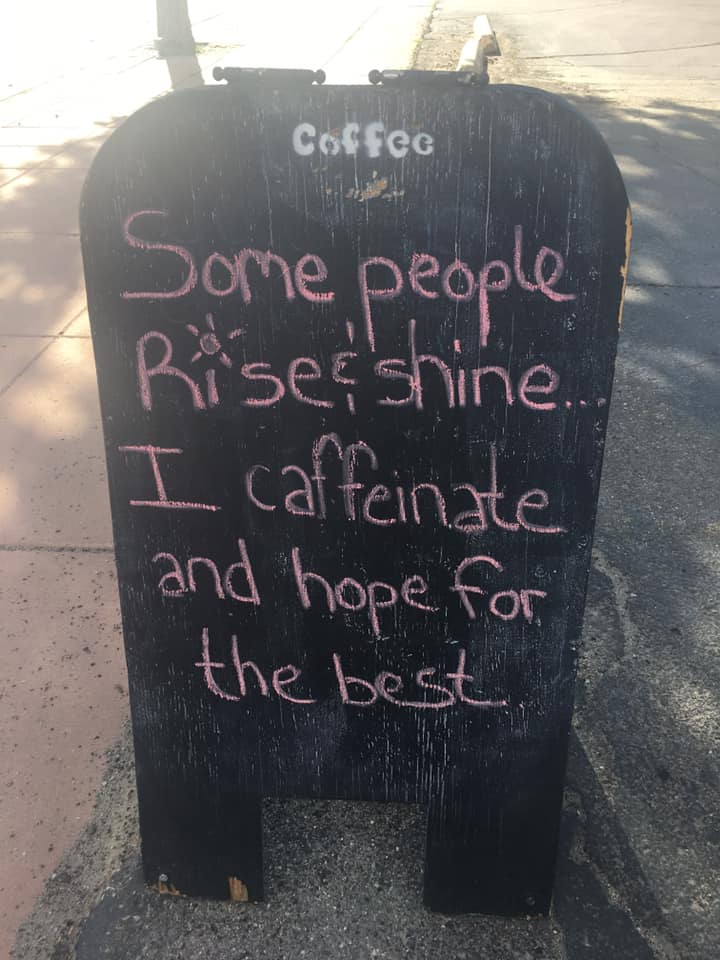 Coffee
Some people
Rise & shine...
I caffeinate
and hope for
the best.